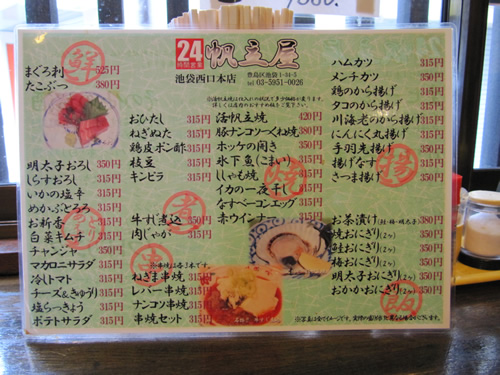 24
時間営業
帆立屋
池袋西口本店
豊島区西池袋1-34-5
☎ 03-5951-0026
鮮
まぐろ刺 525円
たこぶつ 380円
明太子おろし 350円
しらすおろし 315円
いかの塩辛 315円
めかぶとろろ 315円
お新香 315円
白菜キムチ 315円
チャンジャ 315円
マカロニサラダ 315円
冷しトマト 315円
チーズ&きゅうり 315円
塩らっきょう 315円
ポテトサラダ 315円
おひたし 315円
ねぎぬた 315円
鶏皮ポン酢 315円
枝豆 315円
キンピラ 315円
煮
牛すじ煮込 315円
肉じゃが 315円
串
ねぎま串焼 315円
レバー串焼 315円
ナンコツ串焼 315円
串焼セット 315円
活帆立焼 420円
豚ナンコツつくね焼 315円
ホッケの開き 315円
氷下魚(こまい) 315円
ししゃも焼 315円
イカの一夜干し 315円
なすべーコンエッグ 315円
赤ウインナー 315円
焼
ハムカツ 315円
メンチカツ 315円
鶏のから揚げ 315円
タコのから揚げ 315円
川海老のから揚げ 315円
にんにく丸揚げ 315円
手羽先揚げ 315円
揚げなす 315円
さつま揚げ 315円
揚
お茶漬け(鮭・梅・明太子) 380円
焼おにぎり(2ヶ) 315円
鮭おにぎり(2ヶ) 315円
梅おにぎり(2ヶ) 315円
明太子おにぎり(2ヶ) 315円
おかかおにぎり(2ヶ) 315円
飯